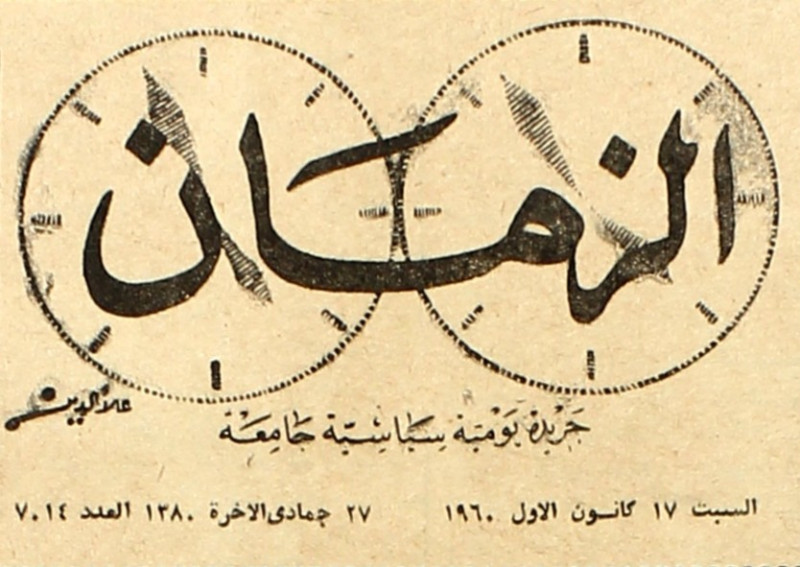 الزمان
علاء الدين
جَريدة يَوميّة سيَاسيّة جَامعَة
السبت ١٧ كانون الاول ١٩٦٠
٢٧ جمادى الاخرة ١٣٨٠ العدد ٧٠١٤